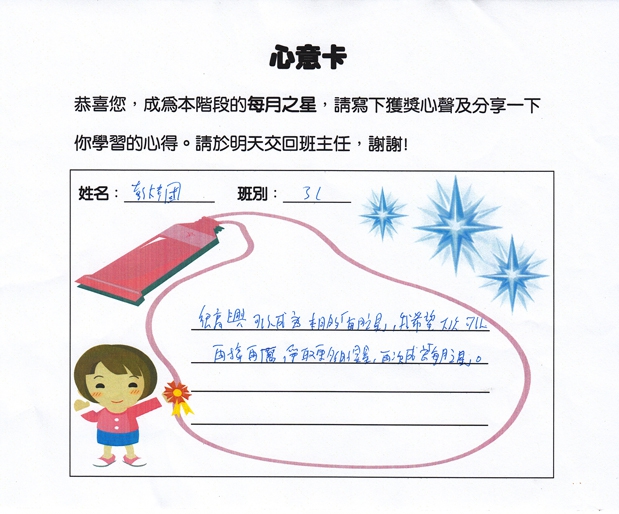 心意卡
恭喜您，成為本階段的每月之星，請寫下獲獎心聲及分享一下
你學習的心得。請於明天交回班主任，謝謝!
姓名： 班別： 3L
很高興 可以成為 本月的「每月之星」，我希望 下次可以
再接再厲，爭取更多的星星，再次成為「每月之星」。